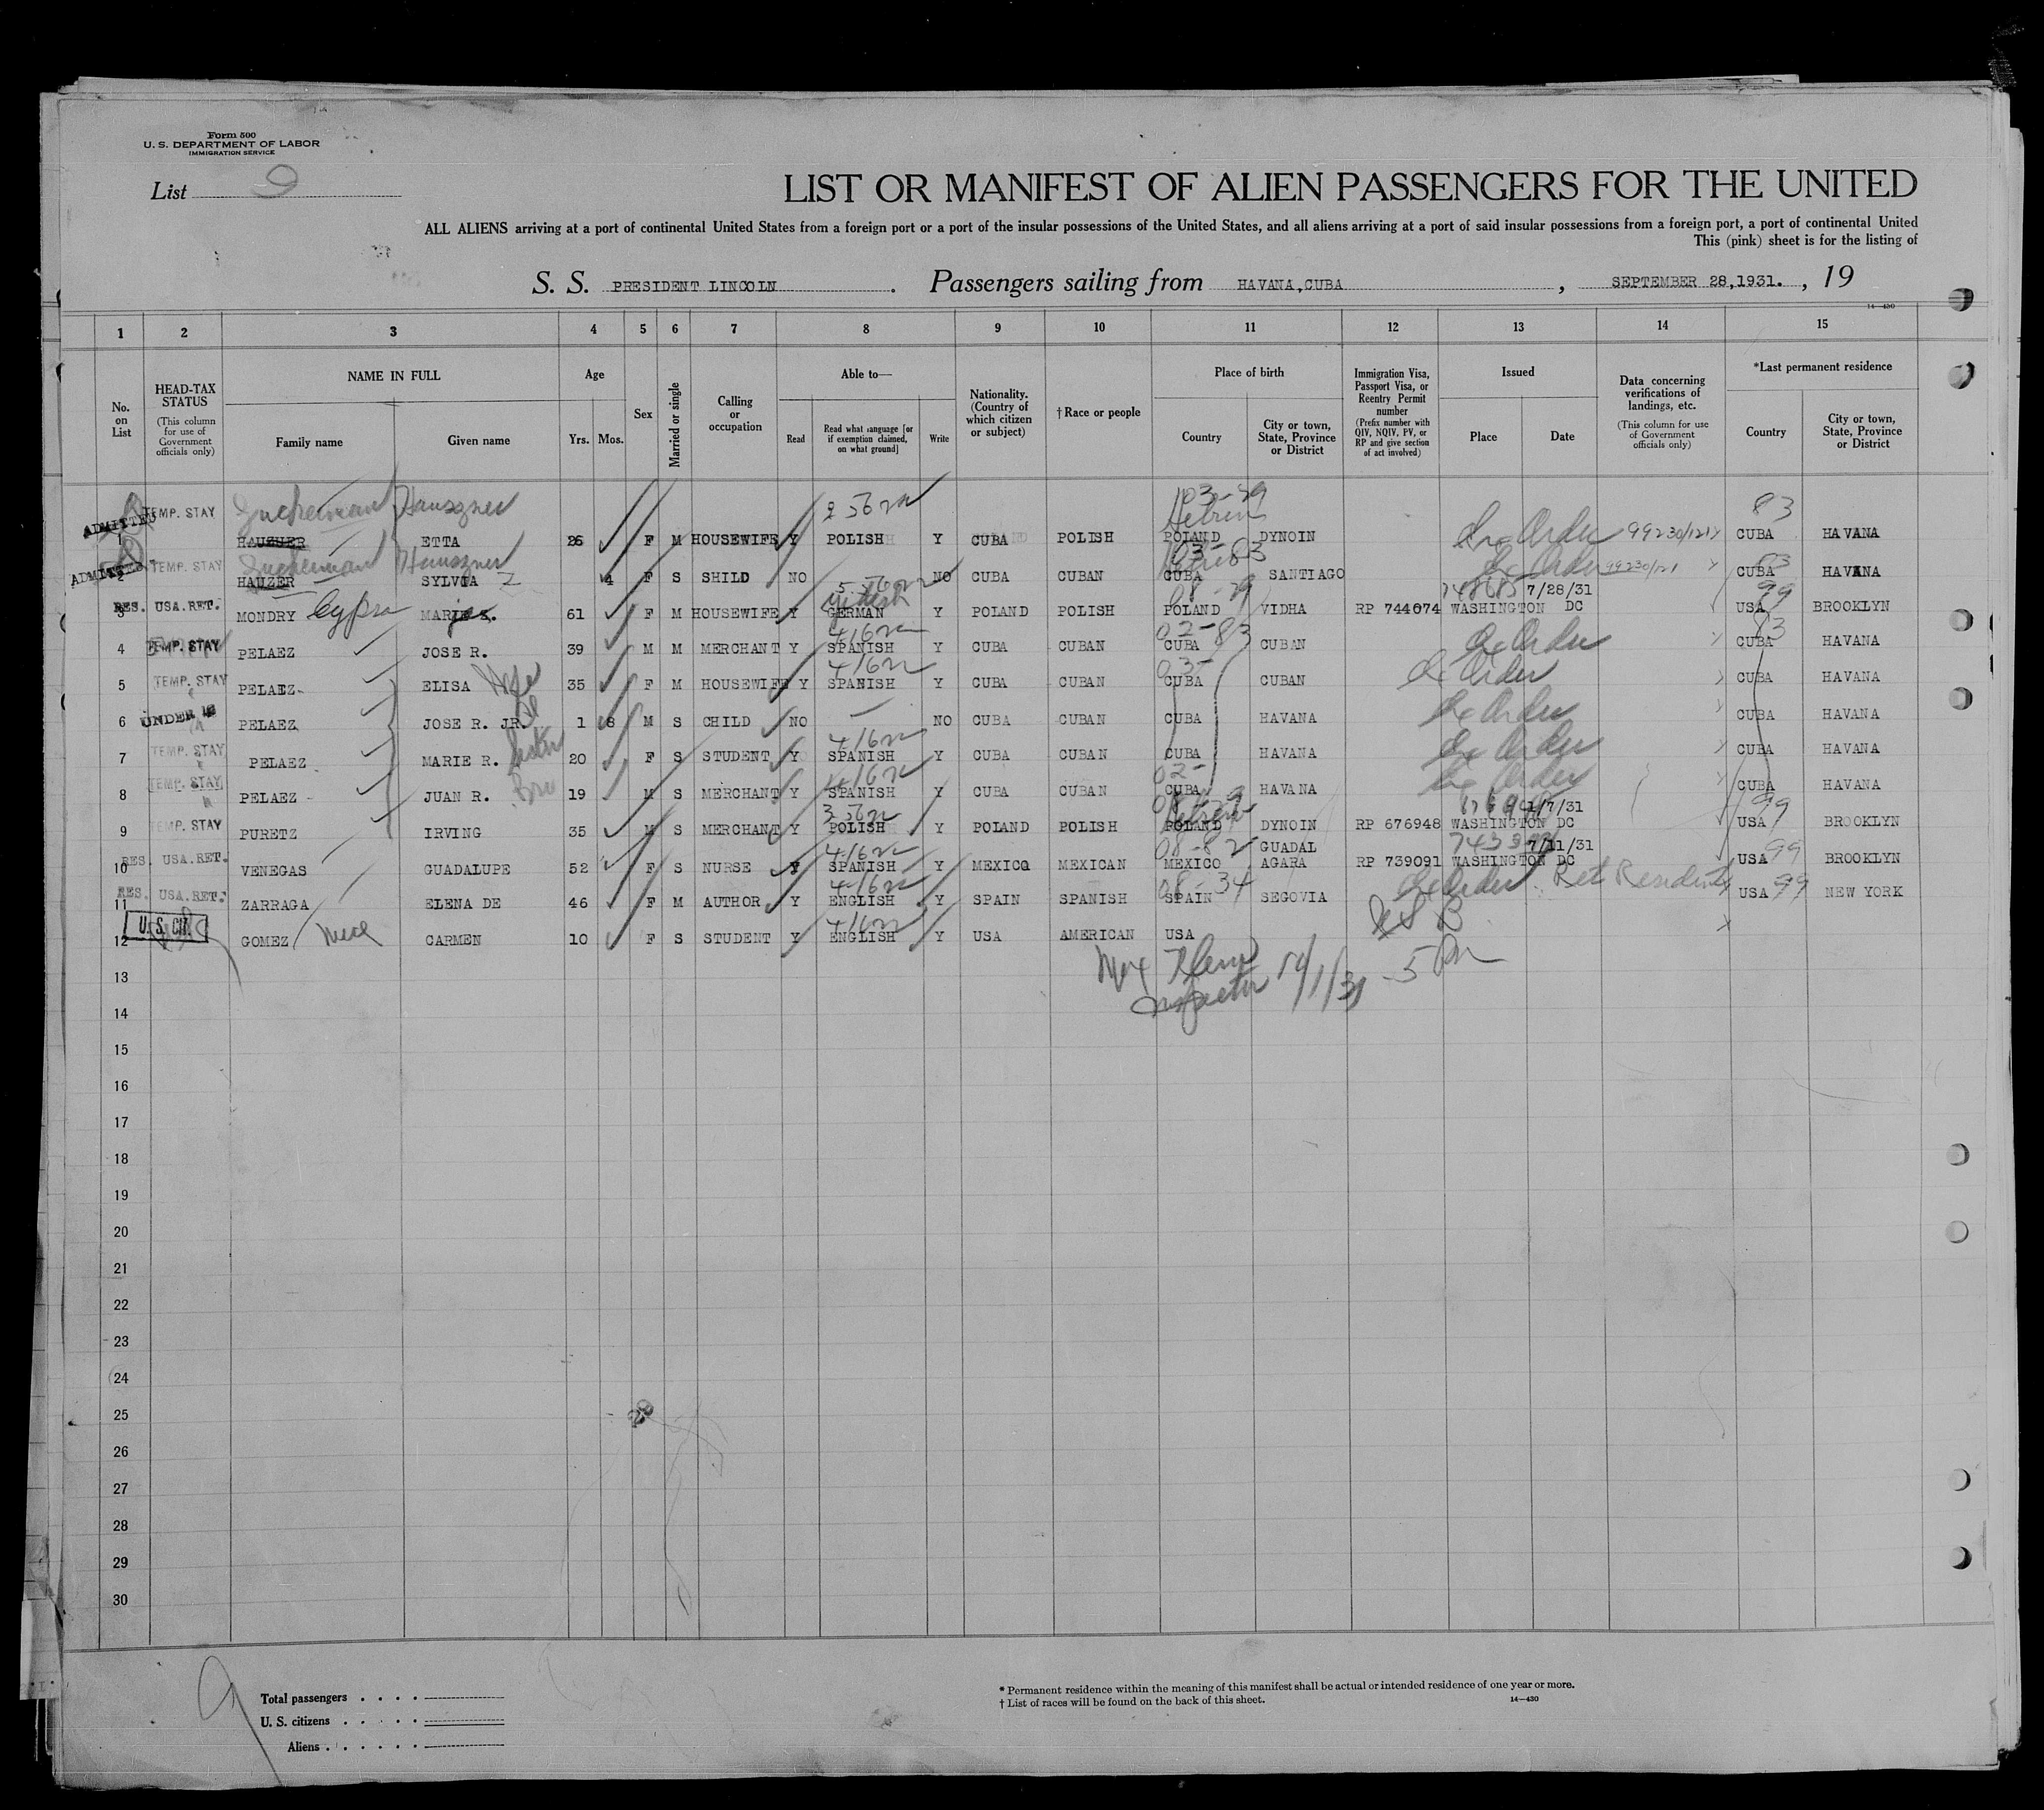 Form 500
U. S. DEPARTMENT OF LABOR
IMMIGRATION SERVICE
List 9
LIST OR MANIFEST OF ALIEN PASSENGERS FOR THE UNITED
ALL ALIENS arriving at a port of continental United States from a foreign port or a port of the insular possessions of the United States, and all aliens arriving at a port of said insular possessions from a foreign port, a port of continental United
This (pink) sheet is for the listing of
S. S. PRESIDENT LINCOLN. Passengers sailing from HAVANA, CUBA, SEPTEMBER 28, 1931., 19
14—430
1 2 3 4 5 6 7 8 9 10 11 12 13 14 15
No. on List
HEAD-TAX STATUS (This column for use of Government officials only)
NAME IN FULL
Family name Given name
Age
Yrs. Mos.
Sex
Married or single
Calling or occupation
Able to—
Read Read what language [or if exemption claimed, on what ground] Write
Nationality. (Country of which citizen or subject)
† Race or people
Place of birth
Country City or town, State, Province or District
Immigration Visa, Passport Visa, or Reentry Permit number (Prefix number with QIV, NQIV, PV, or RP and give section of act involved)
Issued
Place Date
Data concerning verifications of landings, etc. (This column for use of Government officials only)
*Last permanent residence
Country City or town, State, Province or District
Hauszner 103-29 83
ADMITTED TEMP. STAY
1 HAUZNER ETTA 26 F M HOUSEWIFE Y POLISH Y CUBA POLISH POLAND DYNOIN 99230/121 CUBA HAVANA
Hauszner
ADMITTED TEMP. STAY
2 HAUZER SYLVIA 4 F S SHILD NO NO CUBA CUBAN CUBA SANTIAGO 99230/121 CUBA HAVANA
Yidish 748685 7/28/31 99
RES. USA. RET.
3 MONDRY MARIE S. 61 F M HOUSEWIFE Y GERMAN Y POLAND POLISH POLAND VIDHA RP 744074 WASHINGTON DC USA BROOKLYN
02-83 83
4 TEMP. STAY PELAEZ JOSE R. 39 M M MERCHANT Y SPANISH Y CUBA CUBAN CUBA CUBAN Ex Order CUBA HAVANA
5 TEMP. STAY PELAEZ ELISA Wife 35 F M HOUSEWIFE Y SPANISH Y CUBA CUBAN CUBA CUBAN Ex Order CUBA HAVANA
6 UNDER 16 PELAEZ JOSE R. JR. 1 8 M S CHILD NO NO CUBA CUBAN CUBA HAVANA Ex Order CUBA HAVANA
7 TEMP. STAY PELAEZ MARIE R. Sister 20 F S STUDENT Y SPANISH Y CUBA CUBAN CUBA HAVANA Ex Order CUBA HAVANA
8 TEMP. STAY PELAEZ JUAN R. Bro 19 M S MERCHANT Y SPANISH Y CUBA CUBAN CUBA HAVANA Ex Order CUBA HAVANA
1/7/31 99
9 TEMP. STAY PURETZ IRVING 35 M S MERCHANT Y POLISH Y POLAND POLISH POLAND DYNOIN RP 676948 WASHINGTON DC USA BROOKLYN
08-82 GUADAL 7/11/31
10 RES. USA. RET. VENEGAS GUADALUPE 52 F S NURSE Y SPANISH Y MEXICO MEXICAN MEXICO AGARA RP 739091 WASHINGTON DC USA 99 BROOKLYN
08-34 Ex Order Ret Resident
11 RES. USA. RET. ZARRAGA ELENA DE 46 F M AUTHOR Y ENGLISH Y SPAIN SPANISH SPAIN SEGOVIA USA 99 NEW YORK
12 U. S. CIT. GOMEZ niece CARMEN 10 F S STUDENT Y ENGLISH Y USA AMERICAN USA
13
Inspector
14
15
16
17
18
19
20
21
22
23
24
25
26
27
28
29
30
9
Total passengers
U. S. citizens
Aliens
* Permanent residence within the meaning of this manifest shall be actual or intended residence of one year or more.
† List of races will be found on the back of this sheet. 14—430